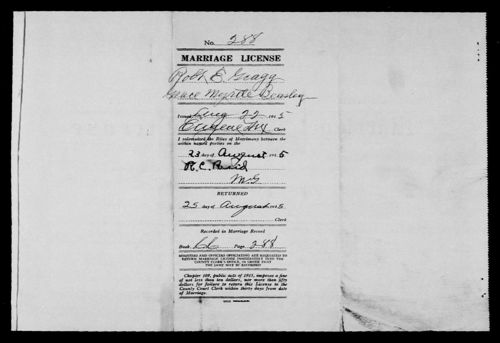 No. 288
MARRIAGE LICENSE
Robt E. Gragg
Grace Myrtle Beasley
Issued Aug 22 1915
Eugene Ivy Clerk
I solemnized the Rites of Matrimony between the
within named parties on the
23 day of August 1915
R. C. Reid
M G
RETURNED
25 day of August 1915
Clerk
Recorded in Marriage Record
Book Page 288
MINISTERS AND OFFICERS OFFICIATING ARE REQUESTED TO
RETURN MARRIAGE LICENSE IMMEDIATELY INTO THE
COUNTY CLERK'S OFFICE, IN ORDER THAT
THE SAME MAY BE RECORDED
Chapter 109, public acts of 1915, imposes a fine
of not less than ten dollars, nor more than fifty
dollars for failure to return this License to the
County Court Clerk within thirty days from date
of Marriage.